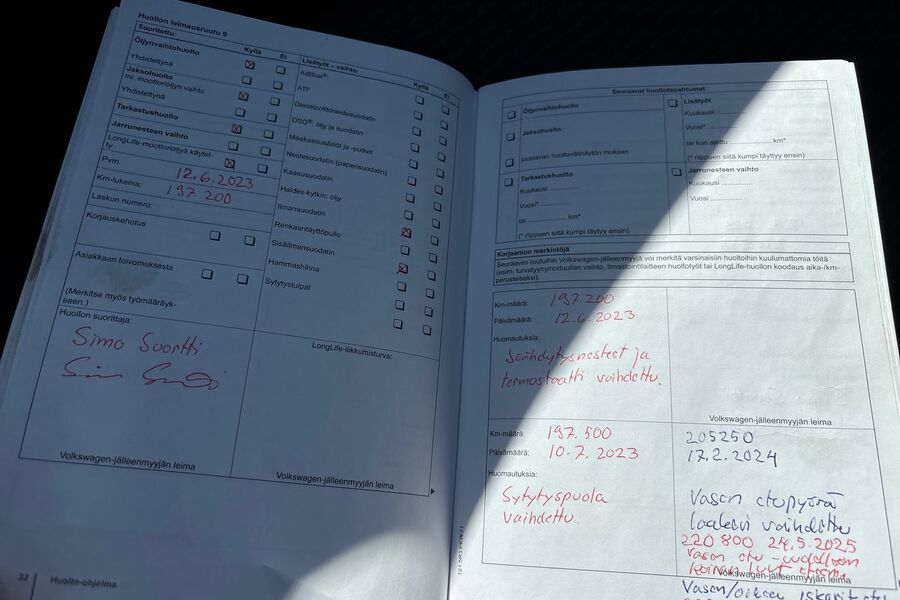 Huollon leimausruutu 9
Suoritettu: Kyllä Ei
Öljynvaihtohuolto
Yhdistettynä
Jaksohuolto
ml. moottoriöljyn vaihto
Yhdistettynä
Tarkastushuolto
Jarrunesteen vaihto
LongLife-moottoriöljyä käytet-
ty
Pvm. 12.6.2023
Km-lukema: 197 200
Laskun numero:
Korjauskehotus
Asiakkaan toivomuksesta
(Merkitse myös työmääräyk-
seen.)
Huollon suorittaja:
Simo Suortti
Volkswagen-jälleenmyyjän leima
Lisätyöt – vaihto: Kyllä Ei
AdBlue®:
ATF
Dieselpolttonestesuodatin
DSG®: öljy ja suodatin
Maakaasusäiliöt ja -putket
Nestesuodatin (paperisuodatin)
Kaasusuodatin
Haldex-kytkin: öljy
Ilmansuodatin
Renkaantäyttöpullo
Sisäilmansuodatin
Hammashihna
Sytytystulpat
LongLife-liikkumisturva:
Volkswagen-jälleenmyyjän leima
32 Huolto-ohjelma
Seuraavat huoltotapahtumat
Öljynvaihtohuolto
Jaksohuolto
joustavan huoltovälinäytön mukaan
Tarkastushuolto
Kuukausi ............
Vuosi* ............
tai ............ km*
(* riippuen siitä kumpi täyttyy ensin)
Lisätyöt
Kuukausi ............
Vuosi* ............
tai kun ajettu ............ km*
(* riippuen siitä kumpi täyttyy ensin)
Jarrunesteen vaihto
Kuukausi ............
Vuosi ............
Korjaamon merkintöjä
Seuraaviin ruutuihin Volkswagen-jälleenmyyjä voi merkitä varsinaisiin huoltoihin kuulumattomia töitä
(esim. turvatyynymoduulien vaihto, ilmastointilaitteen huoltotyöt tai LongLife-huollon koodaus aika-/km-
perusteiseksi).
Km-määrä: 197.200
Päivämäärä: 12.6.2023
Huomautuksia:
Jäähdytysnesteet ja
termostaatti vaihdettu.
Volkswagen-jälleenmyyjän leima
Km-määrä: 197.500
Päivämäärä: 10.7.2023
Huomautuksia:
Sytytyspuola
vaihdettu.
205250
17.2.2024
Vasen etupyörä
laakeri vaihdettu
220 800 24.5.2025
Vasen etu
Volkswagen-jälleenmyyjän leima
Vasen/oikea iskarit etu